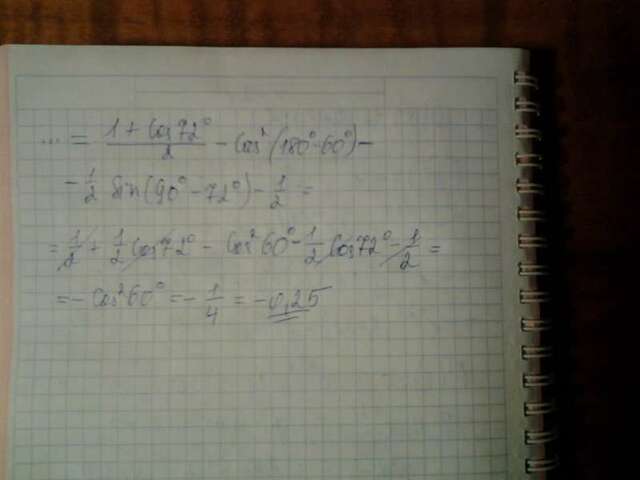 ... = (1 + cos 72°)/2 - cos²(180° - 60°) -
- 1/2 sin(90° - 72°) - 1/2 =
= 1/2 + 1/2 cos 72° - cos² 60° - 1/2 cos 72° - 1/2 =
= - cos² 60° = - 1/4 = - 0,25